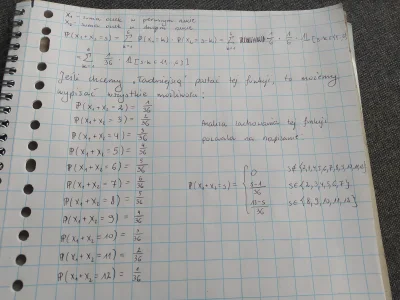 X₁ - suma oczek w pierwszym rzucie
X₂ - suma oczek w drugim rzucie
P(X₁+X₂=s) = Σ P(X₁=k) · P(X₂=s-k) = Σ 1/6 · 1/6 ·
= Σ 1/36 ·
Jeśli chcemy "ładniejszą" postać tej funkcji, to możemy
wypisać wszystkie możliwości:
P(X₁+X₂=2) = 1/36
P(X₁+X₂=3) = 2/36
P(X₁+X₂=4) = 3/36
P(X₁+X₂=5) = 4/36
P(X₁+X₂=6) = 5/36
P(X₁+X₂=7) = 6/36
P(X₁+X₂=8) = 5/36
P(X₁+X₂=9) = 4/36
P(X₁+X₂=10) = 3/36
P(X₁+X₂=11) = 2/36
P(X₁+X₂=12) = 1/36
Analiza zachowania tej funkcji
pozwala na napisanie:
P(X₁+X₂=s) =
0 s∉{2,3,4,5,6,7,8,9,10,11,12}
s-1/36 s∈{2,3,4,5,6,7}
13-s/36 s∈{8,9,10,11,12}